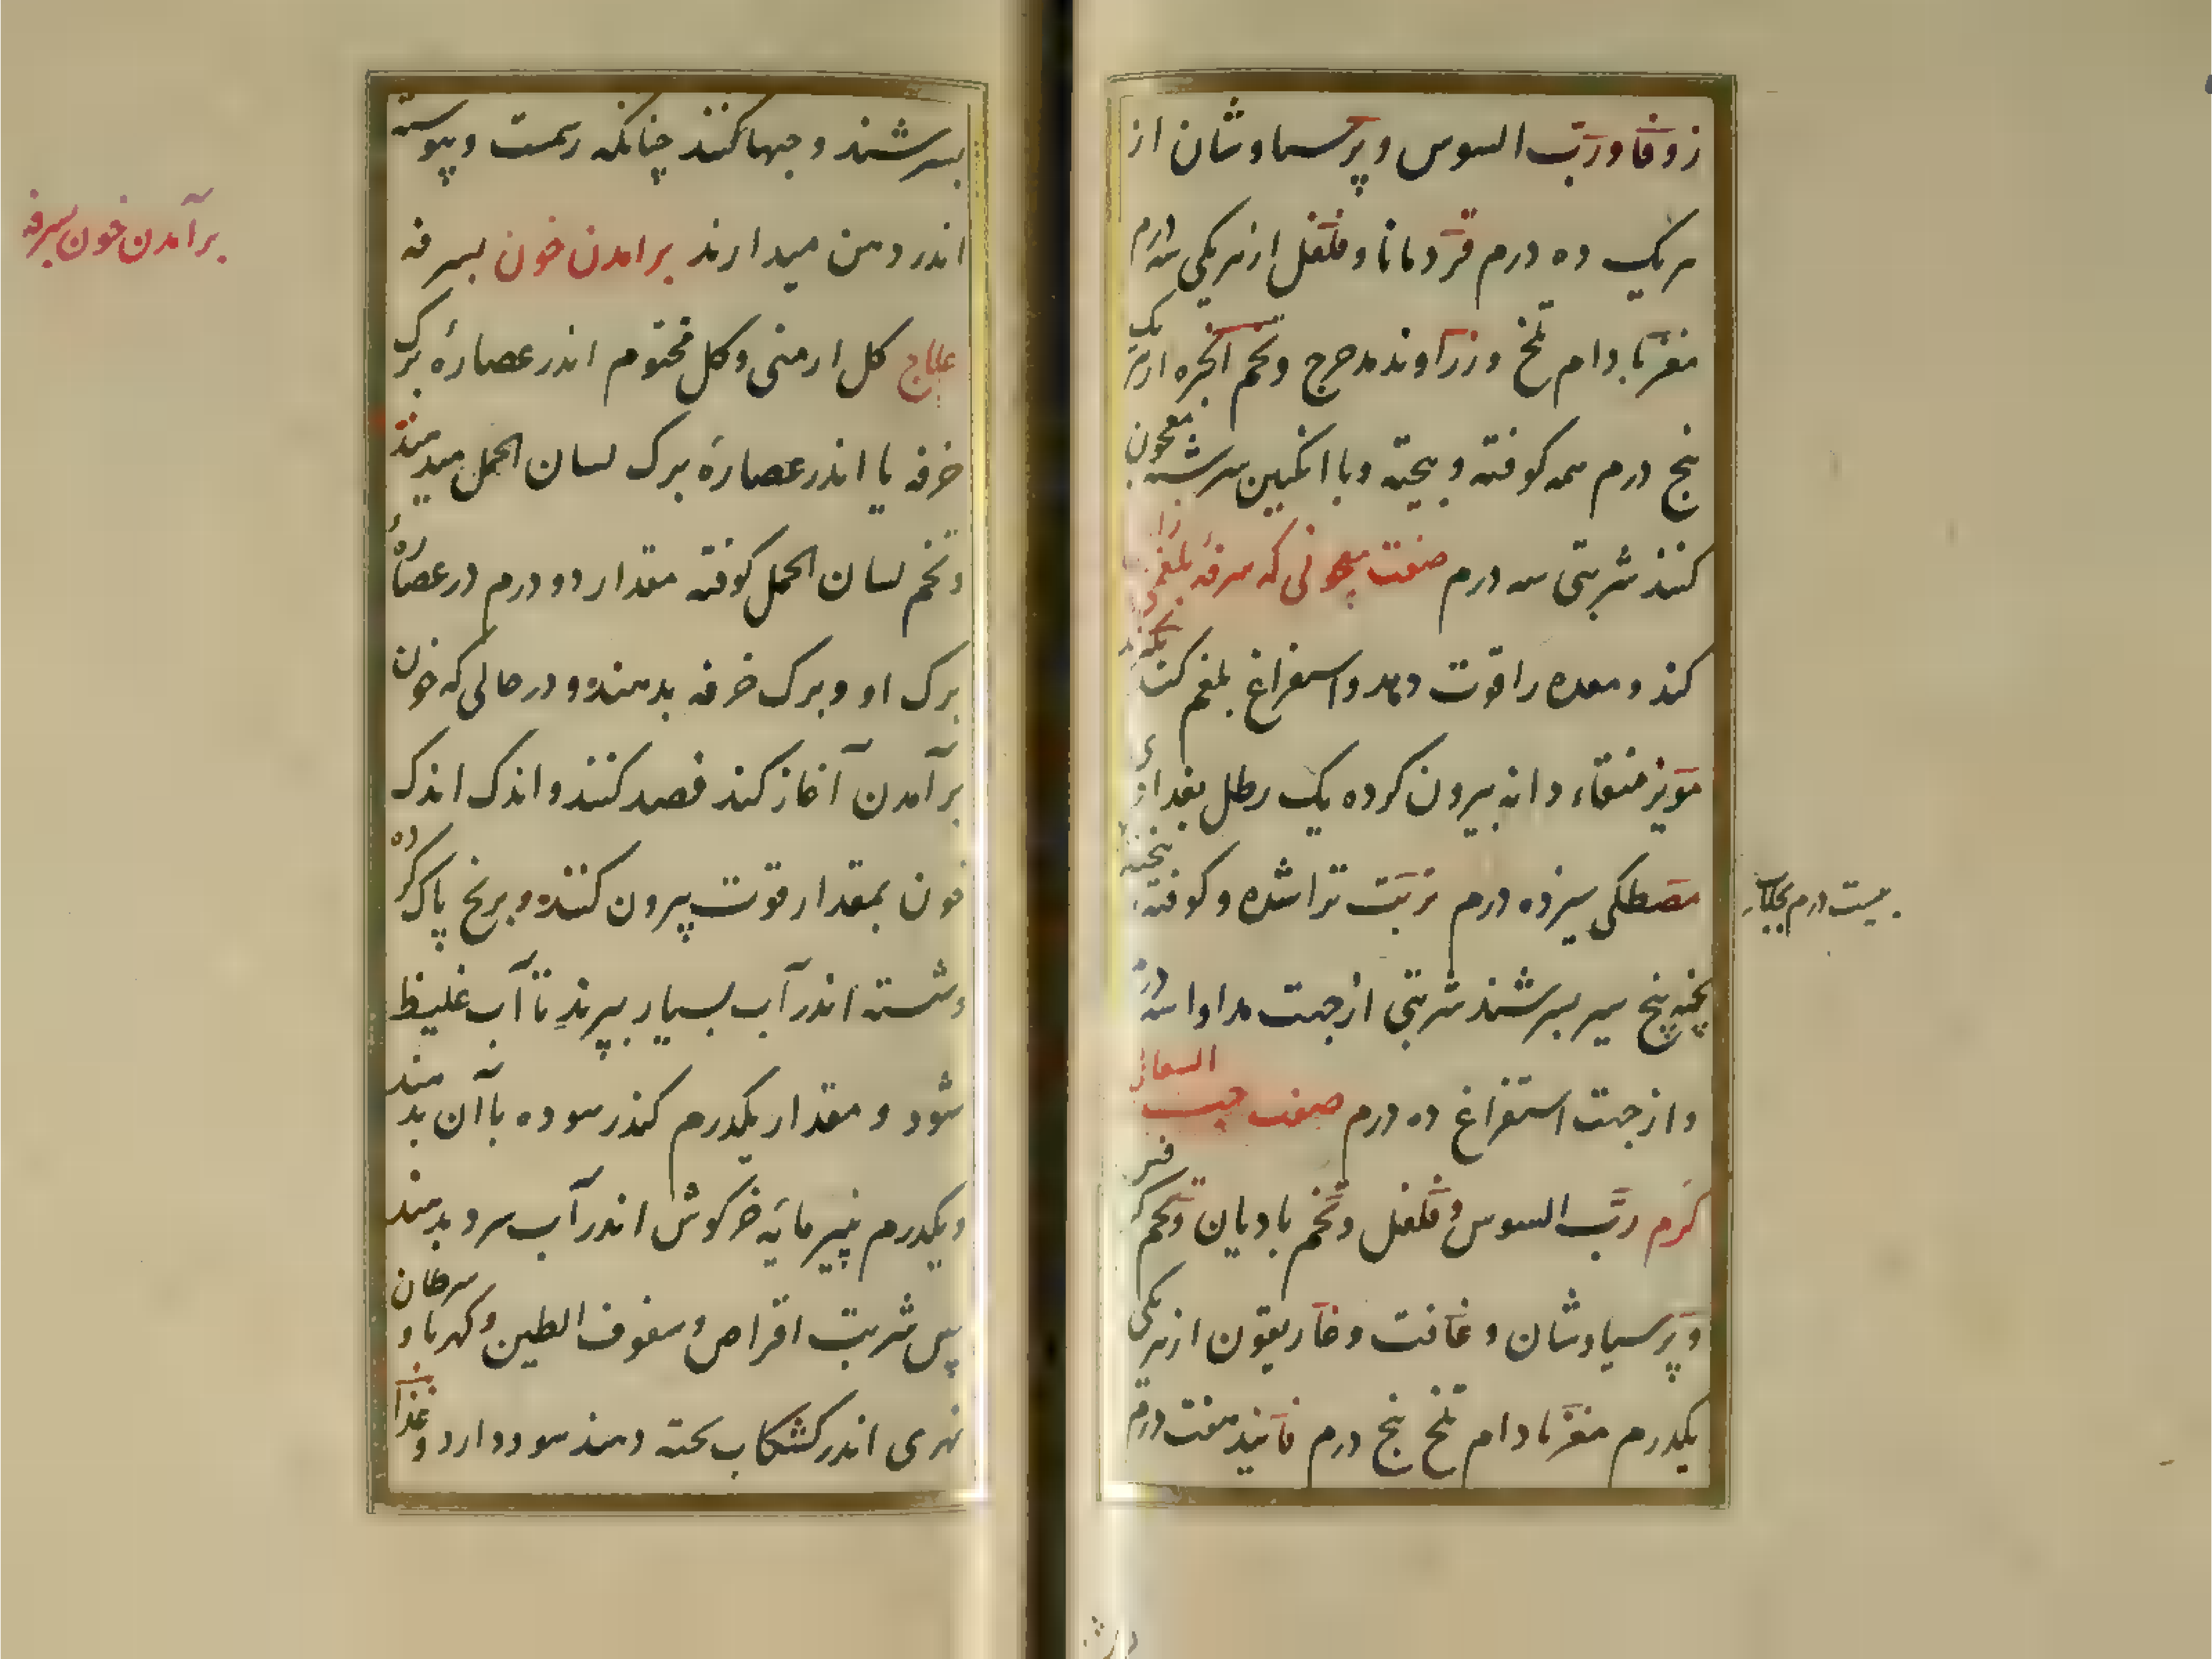 زوفا و رب السوس و پرسیاوشان از
هریک ده درم قردمانا و فلفل از هریکی سه درم
مغز بادام تلخ و زراوند مدحرج و تخم انجره از هر یک
پنج درم همه کوفته و بیخته و با انگبین سرشته معجون
کنند شربتی سه درم صفت معجونی که سرفهٔ بلغمی را
کند و معده را قوت دهد و استفراغ بلغم کند
مویز منقاء دانه بیرون کرده یک رطل بغدادی
مصطکی سیزده درم تربت تراشده و کوفته بیخته
بیست درم بجلاب
پخته پنج سیر بسرشند شربتی از جهت مداوا سه درم
و از جهت استفراغ ده درم صفت حب السعال
کرم رب السوس و فلفل و تخم بادیان و تخم کرفس
و پرسیاوشان و غافت و غاریقون از هر یکی
یکدرم مغز بادام تلخ پنج درم فانید هفت درم
بسرشند و حبها کنند چنانکه رسمت و پیوسته
اندر دهن میدارند برامدن خون بسرفه
برآمدن خون بسرفه
علاج کل ارمنی و کل مختوم اندر عصارهٔ برک
خرفه یا اندر عصارهٔ برک لسان الحمل میدهند
و تخم لسان الحمل کوفته مقدار دو درم در عصارهٔ
برک او و برک خرفه بدهند و در حالی که خون
برآمدن آغاز کند فصد کنند و اندک اندک
خون بمقدار قوت بیرون کنند و برنج پاک کرده
و شسته اندر آب بسیار بپزند تا آب غلیظ
شود و مقدار یکدرم کندر سوده با آن بدهند
و یکدرم پنیر مایه خرکوش اندر آب سرد بدهند
پس شربت اقراص و سفوف الطین و کهربا و سرطان
نهری اندر کشکاب پخته دهند سود دارد و غذاش